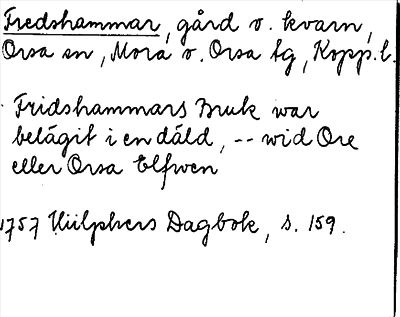 Fredshammar, gård o. kvarn,
Orsa sn, Mora o. Orsa tg, Kopp. l.
Fridshammars Bruk war
belägit i en däld, -- wid Ore
eller Orsa Elfwen
1757 Hülphers Dagbok, s. 159.